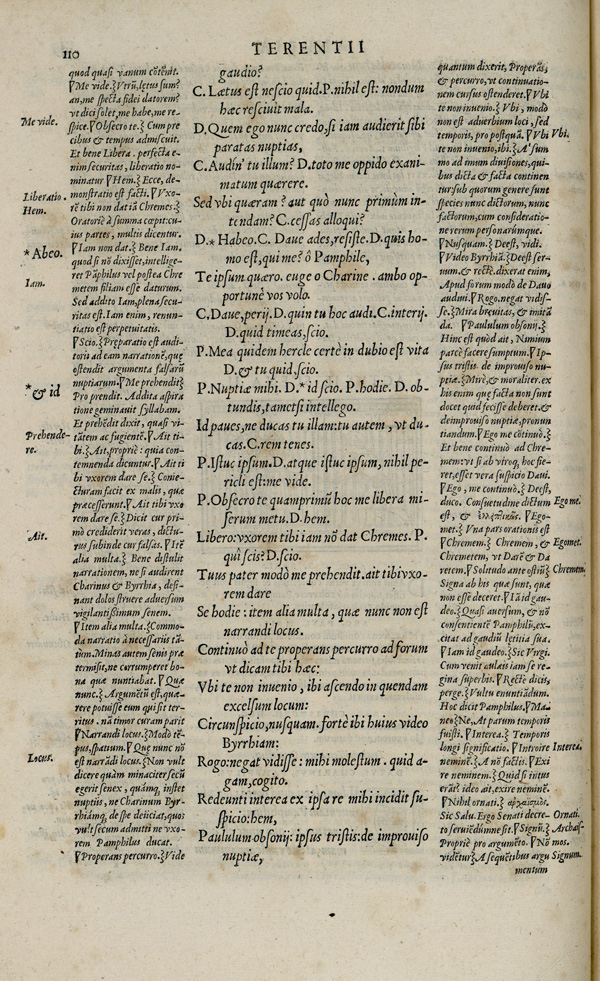 110
TERENTII
quod quasi vanum cõtẽnit.
¶Me vide.} Verũ, lętus sum?
an, me specta fidei datorem?
vt dici solet, me habe, me re-
spice. ¶Obsecro te.} Cum pre
cibus & tempus admiscuit.
Et bene Libera. perfecta e-
nim securitas, liberatio no-
minatur ¶Hem.} Ecce, de-
monstratio est facti. ¶Vxo-
rẽ tibi non dat iã Chremes.}
Oratoriè à summa cœpit: cu-
ius partes, multis dicentur.
¶Iam non dat.} Bene Iam,
quod si nõ dixisset, intellige-
ret Pãphilus vel postea Chre
metem filiam esse daturum.
Sed addito Iam, plena secu-
ritas est. Iam enim, renun-
tiatio est perpetuitatis.
¶Scio.} Pręparatio est audi-
torii ad eam narrationẽ, quę
ostendit argumenta falsarũ
nuptiarum. ¶Me prehendit}
Pro prendit. Addita aspira
tione geminauit syllabam.
Et prehẽdit dixit, quasi vi-
tãtem ac fugientẽ. ¶Ait ti-
bi.} Ait, propriè: quia con-
temnenda dicuntur. ¶Ait ti
bi vxorem dare se.} Conie-
cturam facit ex malis, quæ
pręcesserunt. ¶Ait tibi vxo
rem dare se.} Dicit cur pri-
mò crediderit veras, dictu-
rus subinde cur falsas. ¶Itẽ
alia multa.} Bene distulit
narrationem, ne si audirent
Charinus & Byrrhia, desi-
nant dolos struere aduersum
vigilantissimum senem.
¶Item alia multa.} Commo-
da narratio à necessariis tã-
tùm. Minas autem senis præ
termisit, ne corrumperet bo-
na quæ nuntiabat. ¶Quæ
nunc.} Argumẽtũ est, quæ-
rere potuisse eum qui sit ter-
ritus. nã timor curam parit
¶Narrandi locus.} Modò tẽ-
pus, spatium. ¶Quę nunc nõ
est narrãdi locus.} Non vult
dicere quàm minaciter secũ
egerit senex, quámq; instet
nuptiis, ne Charinum Byr-
rhiámq; de spe deiiciat, quos
vult secum admitti ne vxo-
rem Pamphilus ducat.
¶Properans percurro.} Vide
Me vide.
Liberatio.
Hem.
*Abeo.
Iam.
*& id
Prehende-
re.
Ait.
Locus.
gaudio?
C. Lætus est nescio quid. P. nihil est: nondum
hæc resciuit mala.
D. Quem ego nunc credo, si iam audierit sibi
paratas nuptias,
C. Audin' tu illum? D. toto me oppido exani-
matum quærere.
Sed vbi quæram? aut quò nunc primùm in-
tendam? C. cessas alloqui?
D.* Habeo. C. Daue ades, resiste. D. quis ho-
mo est, qui me? ô Pamphile,
Te ipsum quæro. euge o Charine. ambo op-
portunè vos volo.
C. Daue, perij. D. quin tu hoc audi. C. interij.
D. quid timeas, scio.
P. Mea quidem hercle certè in dubio est vita
D. & tu quid, scio.
P. Nuptiæ mihi. D.* id scio. P. hodie. D. ob-
tundis, tametsi intellego.
Id paues, ne ducas tu illam: tu autem, vt du-
cas. C. rem tenes.
P. Istuc ipsum. D. atque istuc ipsum, nihil pe-
ricli est: me vide.
P. Obsecro te quamprimũ hoc me libera mi-
serum metu. D. hem.
Libero: vxorem tibi iam nõ dat Chremes. P.
quî scis? D. scio.
Tuus pater modò me prehendit. ait tibi vxo-
rem dare
Se hodie: item alia multa, quæ nunc non est
narrandi locus.
Continuò ad te properans percurro ad forum
vt dicam tibi hæc:
Vbi te non inuenio, ibi ascendo in quendam
excelsum locum:
Circunspicio, nusquam. fortè ibi huius video
Byrrhiam:
Rogo: negat vidisse: mihi molestum. quid a-
gam, cogito.
Redeunti interea ex ipsa re mihi incidit su-
spicio: hem,
Paululum obsonij: ipsus tristis: de improuiso
nuptiæ,
quantum dixerit, Properãs,
& percurro, vt continuatio-
nem cursus ostenderet. ¶Vbi
te non inuenio.} Vbi, modò
non est aduerbium loci, sed
temporis, pro postquã. ¶Vbi
te non inuenio, ibi.} A' sum
mo ad imum diuisiones, qui-
bus dicta & facta continen
tur sub quorum genere sunt
species nunc dictorum, nunc
factorum, cum consideratio-
ne rerum personarumque.
¶Nusquam.} Deest, vidi.
¶Video Byrrhiã.} Deest ser-
uum. & rectè. dixerat enim,
Apud forum modò de Dauo
audiui. ¶Rogo. negat vidis-
se.} Mira breuitas, & imitã
da. ¶Paululum obsonij.}
Hinc est quòd ait, Nimium
parcè facere sumptum. ¶Ip-
sus tristis. de improuiso nu-
ptiæ.} Mirè, & moraliter. ex
his enim quę facta non sunt
docet quid fecisse deberet. &
de improuiso nuptiæ, pronun
tiandum. ¶Ego me cõtinuò.}
Et bene continuò ad Chre-
mem: vt si ab viroq; hoc fie-
ret, esset vera suspicio Daui.
¶Ego, me continuò.} Deest,
duco. Consuetudine dictum
est, & ἐλλειπτικῶς. ¶Ego-
met.} Vna pars orationis est
¶Chremem.} Chremem, &
Chremetem, vt Darẽ & Da
retem. ¶Solitudo ante ostiũ}
Signa ab his quæ sunt, quæ
non esse deceret. ¶Iã id gau-
deo.} Quasi auersum, & nõ
consentientẽ Pamphilũ, ex-
citat ad gaudiũ lętitia sua.
¶Iam id gaudeo.} Sic Virgi.
Cum venit aulæis iam se re-
gina superbis. ¶Rectè dicis,
perge.} Vultu enuntiãdum.
Hoc dicit Pamphilus. ¶Ma-
neo} Ne, At parum temporis
fuisti. ¶Interea.} Temporis
longi significatio. ¶Introire
neminẽ.} A nõ factis. ¶Exi
re neminem.} Quid si intus
erãt? ideo ait, exire neminẽ.
¶Nihil ornati.} ἀρχαϊσμός.
Sic Salu. Ergo Senati decre-
to seruiẽdumne sit. ¶Signũ.}
Propriè pro argumẽto. ¶Nõ
videtur.} A sequẽtibus argu
mentum
Vbi.
Ego me.
Egomet.
Chremem.
Interea.
Ornati.
Archais-
mos.
Signum.